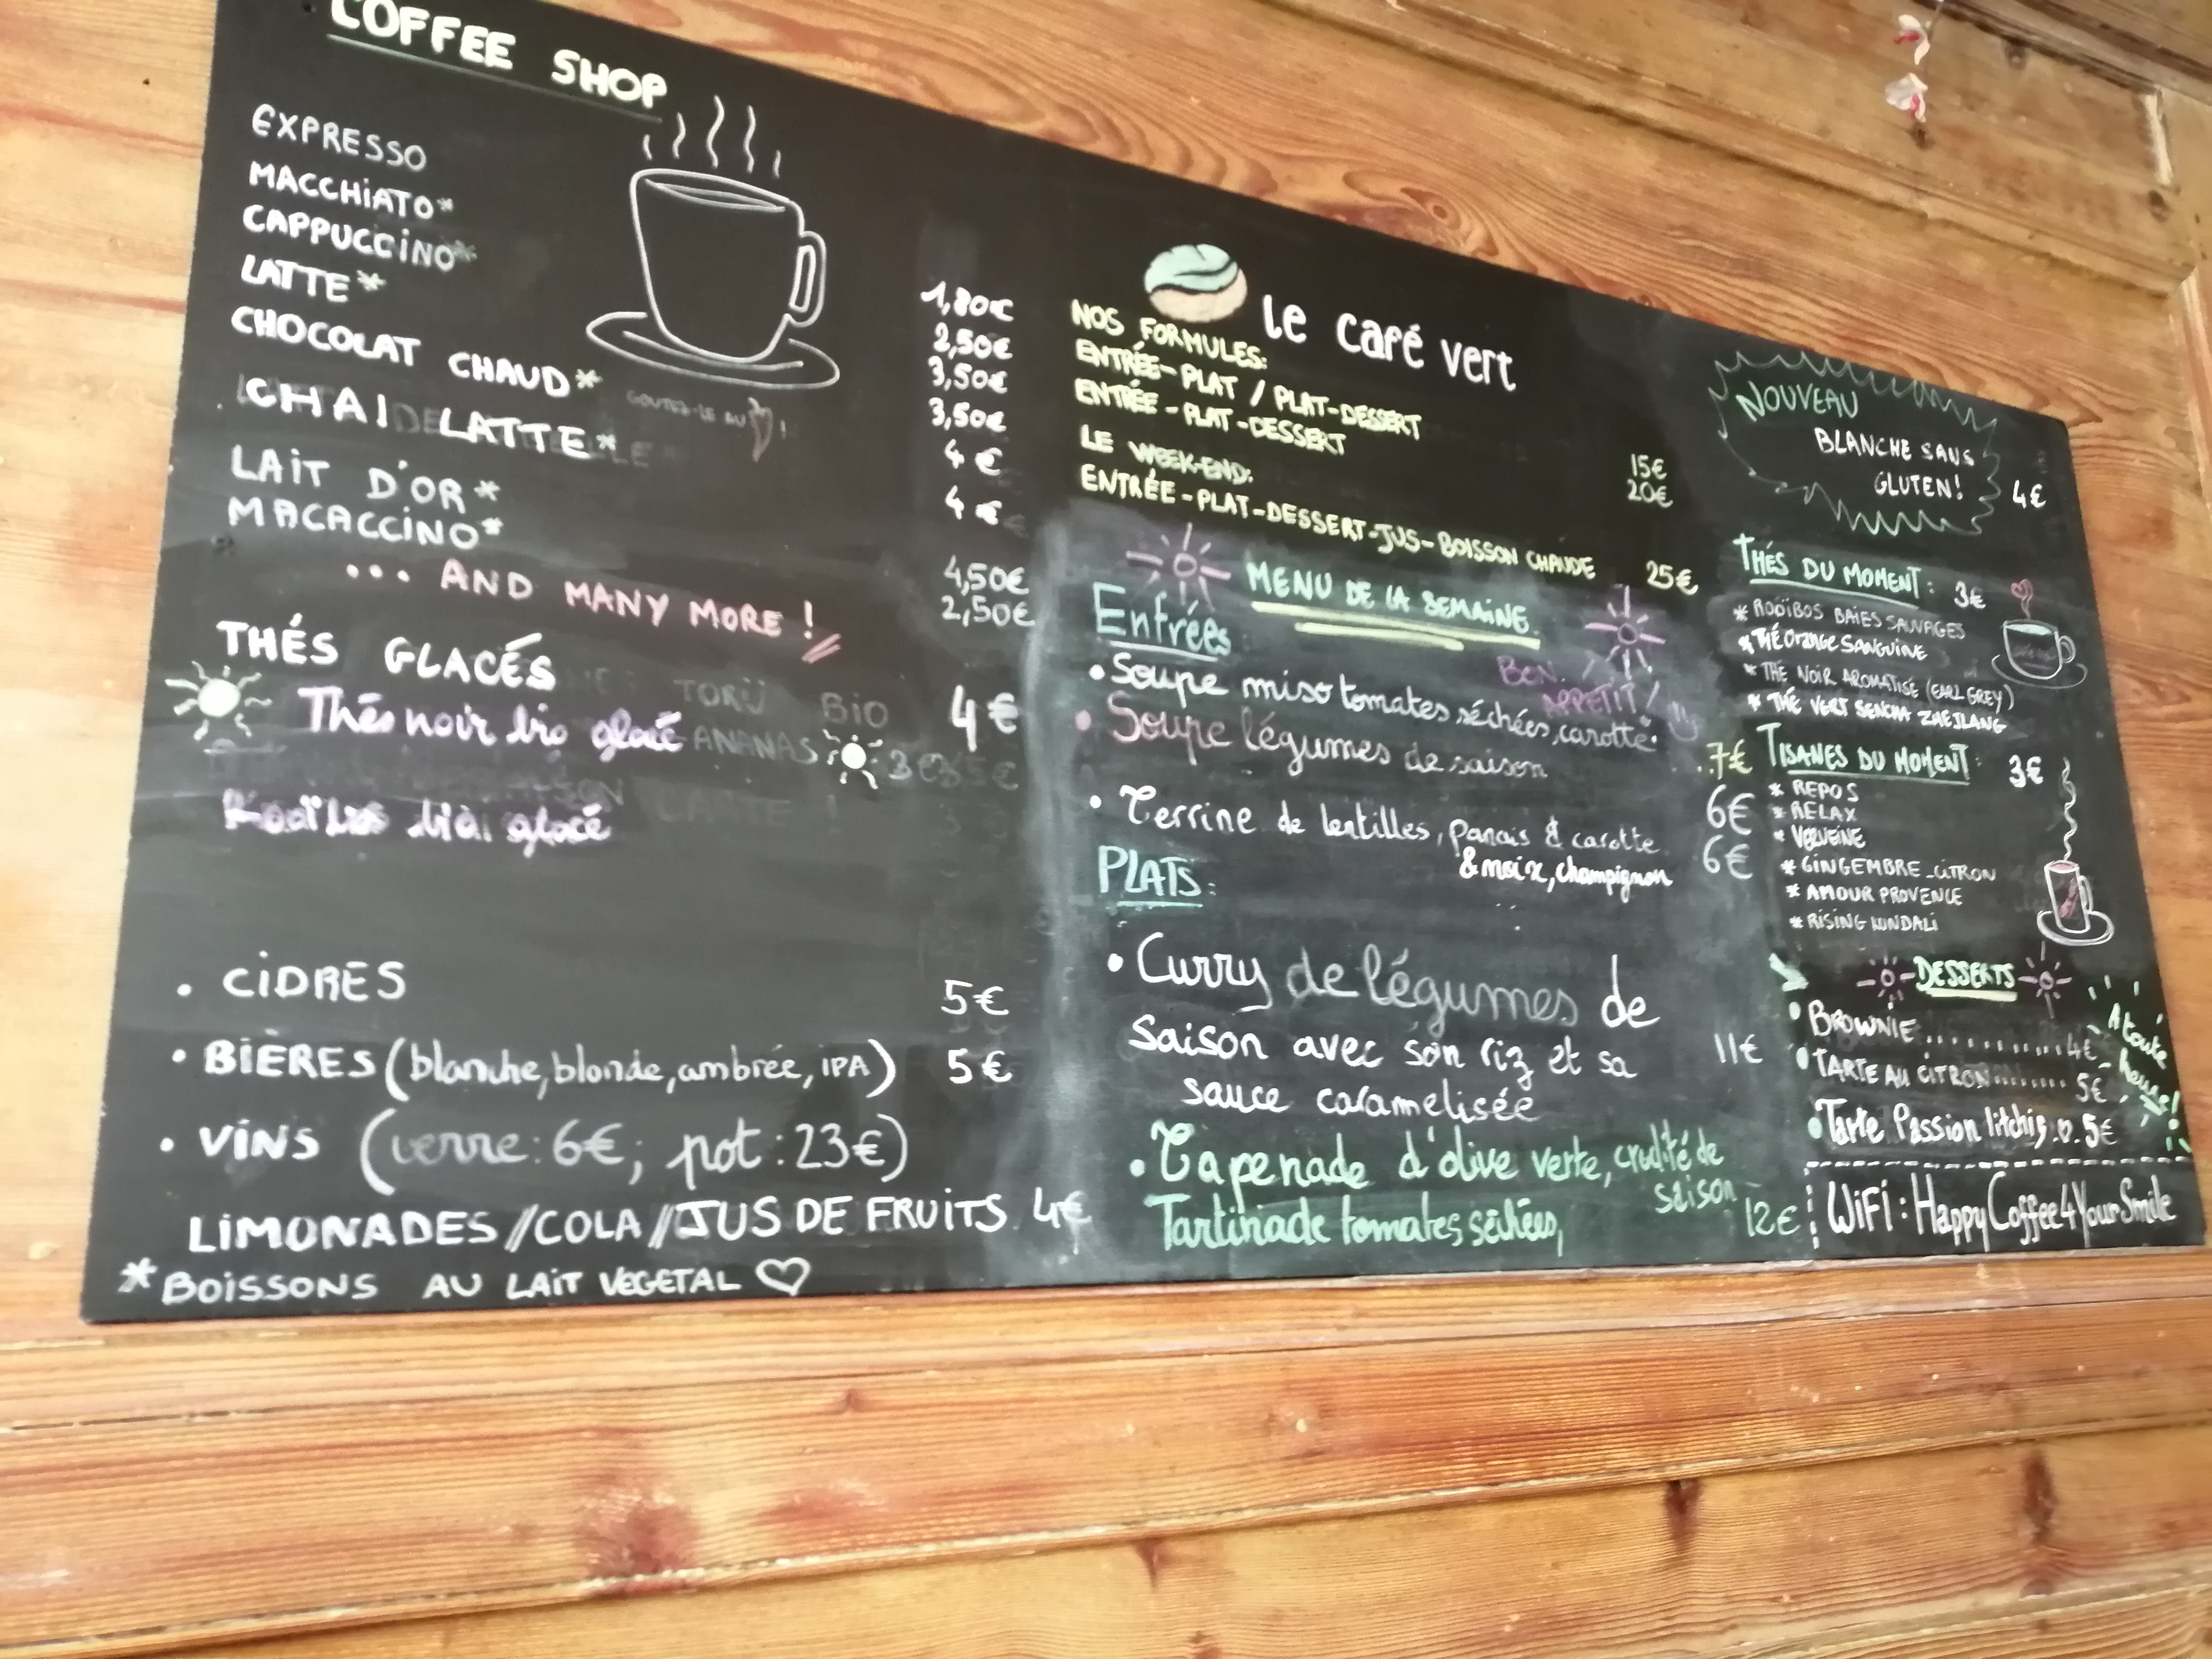 COFFEE SHOP
EXPRESSO 1,80€
MACCHIATO* 2,50€
CAPPUCCINO* 3,50€
LATTE* 3,50€
CHOCOLAT CHAUD* 4€
GOUTEZ-LE AU !
CHAI LATTE* 4€
LAIT D'OR* 4,50€
MACACCINO* 2,50€
... AND MANY MORE !
THÉS GLACÉS 4€
TORÜ BIO
Thés noir bio glacé
ANANAS
glacé
• CIDRES 5€
• BIÈRES (blanche, blonde, ambrée, IPA) 5€
• VINS (verre: 6€; pot: 23€)
LIMONADES // COLA // JUS DE FRUITS 4€
*BOISSONS AU LAIT VEGETAL ♡
le café vert
NOS FORMULES:
ENTRÉE-PLAT / PLAT-DESSERT 15€
ENTRÉE-PLAT-DESSERT 20€
LE WEEK-END:
ENTRÉE-PLAT-DESSERT-JUS-BOISSON CHAUDE 25€
MENU DE LA SEMAINE
BON APPETIT!
Entrées
• Soupe miso tomates séchées, carotte 7€
• Soupe légumes de saison 6€
• Terrine de lentilles, panais & carotte 6€
& noix, champignon
PLATS:
• Curry de légumes de
saison avec son riz et sa 11€
sauce caramelisée
• Tapenade d'olive verte, crudité de
saison
Tartinade tomates séchées, 12€
NOUVEAU
BLANCHE SANS
GLUTEN! 4€
THÉS DU MOMENT: 3€
* ROOÏBOS BAIES SAUVAGES
* THÉ Orange SANGUINE
* THÉ NOIR AROMATISÉ (EARL GREY)
* THÉ VERT SENCHA ZHEJIANG
TISANES DU MOMENT: 3€
* REPOS
* RELAX
* VERVEINE
* GINGEMBRE-CITRON
* AMOUR PROVENCE
* RISING KUNDALI
DESSERTS
• BROWNIE ............ 4€
• TARTE AU CITRON ........ 5€
• Tarte Passion litchis .. 5€
A toute
heure!
WiFi: HappyCoffee4YourSmile